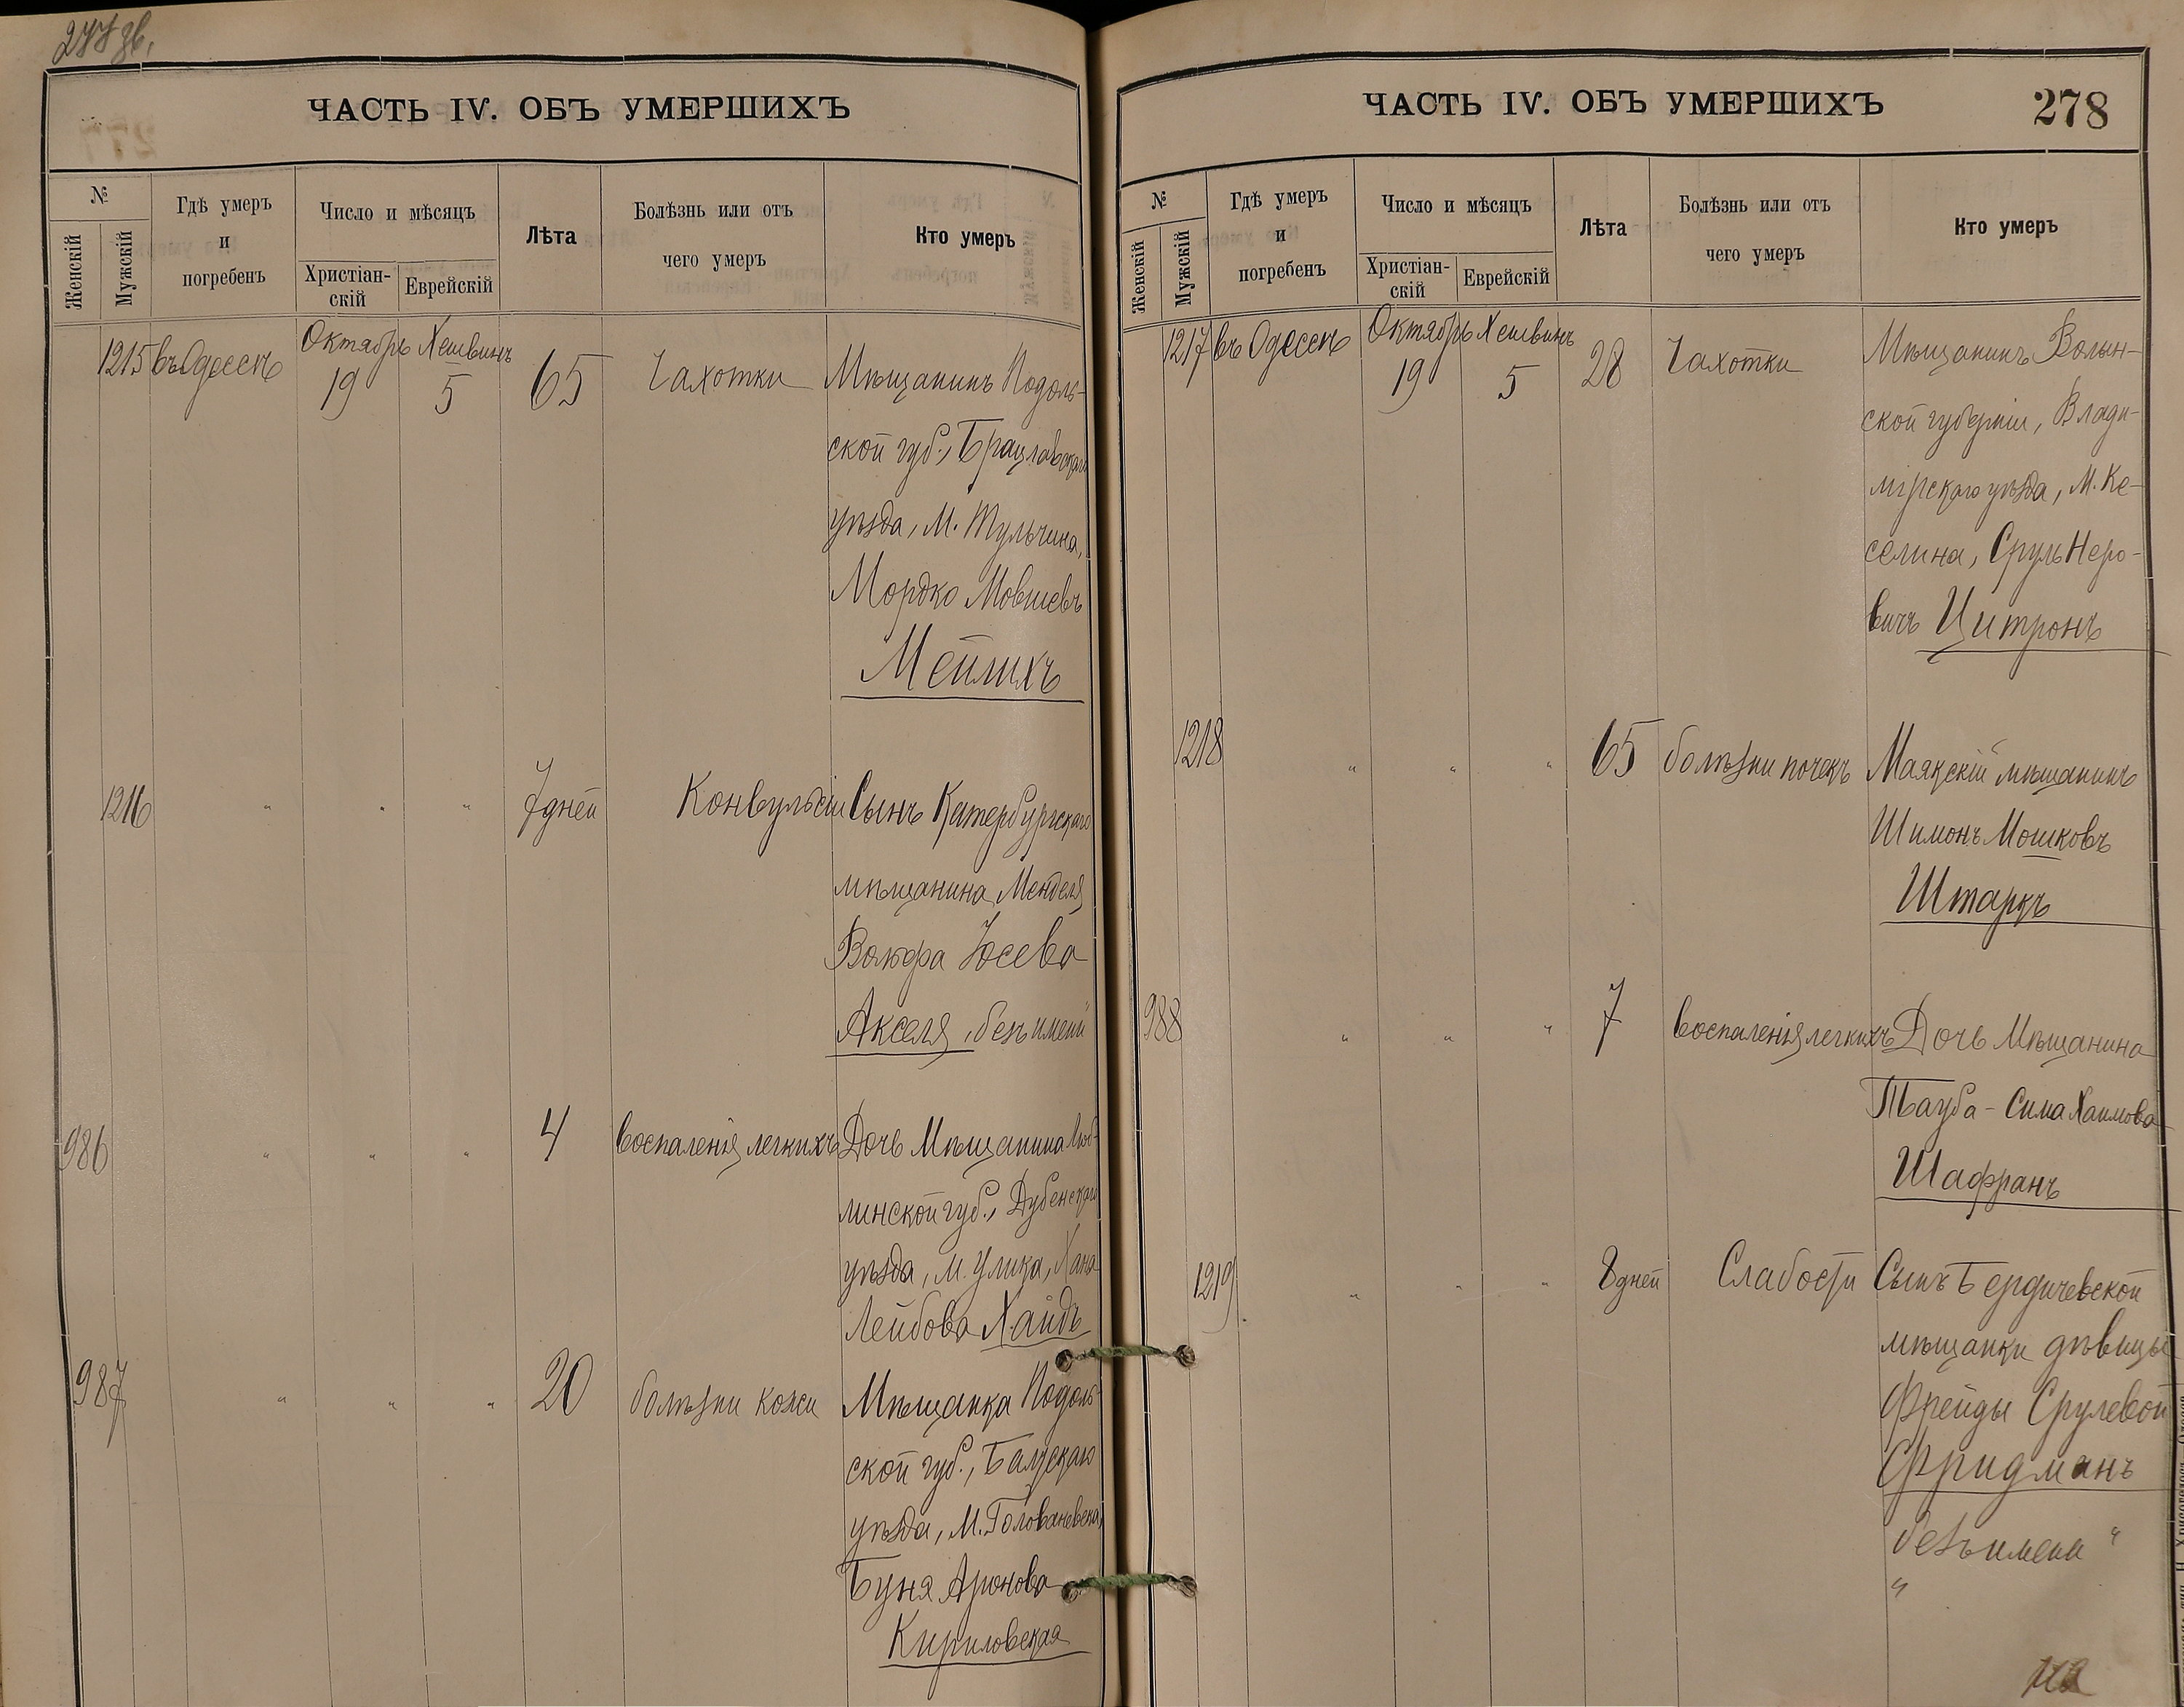 277 зв.
ЧАСТЬ IV. ОБЪ УМЕРШИХЪ
№
Женскій
Мужскій
Гдѣ умеръ
и
погребенъ
Число и мѣсяцъ
Христіан-
скій
Еврейскій
Лѣта
Болѣзнь или отъ
чего умеръ
Кто умеръ
1215 въ Одессѣ Октябрь Хешвинъ 65 Чахотки Мѣщанинъ Подоль-
19 5
ской губ., Брацлавскаго
уѣзда, М. Тульчина,
Мордко Мовшевъ
Мейлихъ
1216 " " " 7 дней Конвульсіи Сынъ Катербургскаго
мѣщанина Менделя
Вольфа Іосева
Акселя, безъ имени
986 " " " 4 Воспаленія легкихъ Дочь Мѣщанина Люб-
линской губ., Дубенскаго
уѣзда, м. Улика, Хана
Лейбова Хаидъ
987 " " " 20 болѣзни кожи Мѣщанка Подоль-
ской губ., Балтскаго
уѣзда, М. Голованевска,
Буня Аронова
Кириловская
ЧАСТЬ IV. ОБЪ УМЕРШИХЪ
278
№
Женскій
Мужскій
Гдѣ умеръ
и
погребенъ
Число и мѣсяцъ
Христіан-
скій
Еврейскій
Лѣта
Болѣзнь или отъ
чего умеръ
Кто умеръ
1217 въ Одессѣ Октябрь Хешвинъ 28 Чахотки Мѣщанинъ Волын-
19 5
ской губерніи, Влади-
мірскаго уѣзда, М. Ке-
селина, Сруль Неро-
вичъ Цитронъ
1218 " " " 65 болѣзни почекъ Маякскій мѣщанинъ
Шимонъ Мошковъ
Штаркъ
988 " " " 7 Воспаленія легкихъ Дочь Мѣщанина
Тауба - Сима Хаимова
Шафранъ
1219 " " " 8 дней Слабости Сынъ Бердичевской
мѣщанки дѣвицы
Фрейды Срулевой
Фридманъ
безъ имени "
"